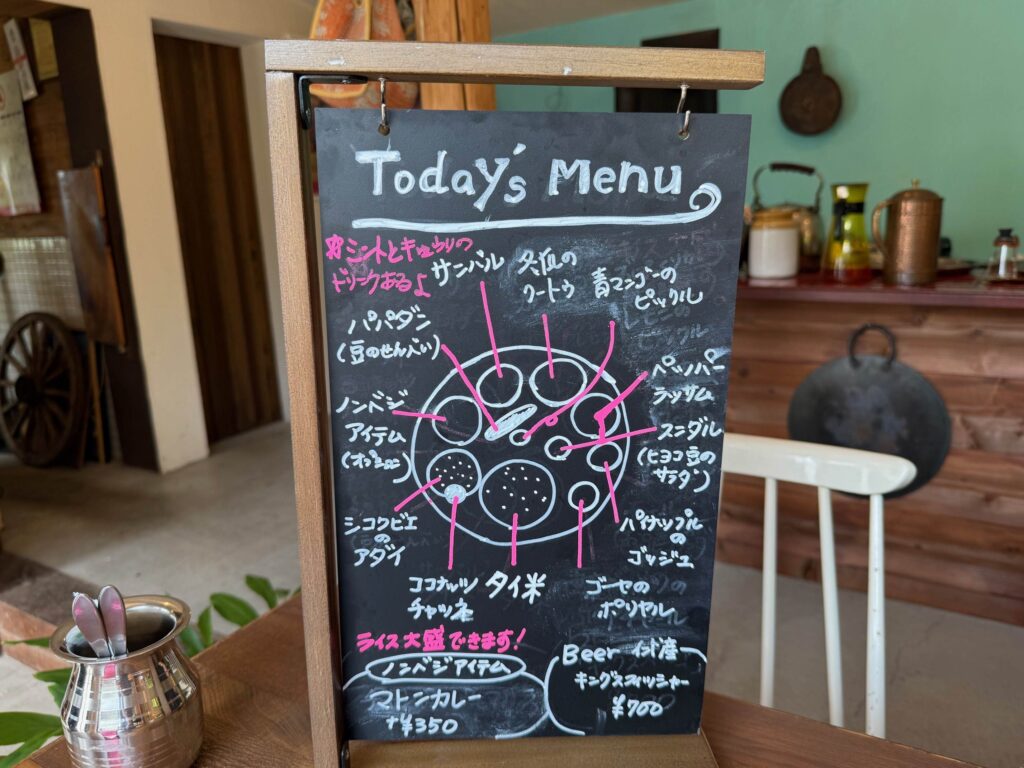 Today's Menu
ミントとキュウリの
ドリンクあるよ
サンバル
冬瓜の
クートゥ
青マンゴーの
ピックル
パパダン
(豆のせんべい)
ペッパー
ラッサム
ノンベジ
アイテム
(オプション)
スンダル
(ヒヨコ豆の
サラダ)
シコクビエ
の
アダイ
パイナップル
の
ゴッジュ
ココナッツ
チャツネ
タイ米
ゴーヤの
ポリヤル
ライス大盛できます!
ノンベジアイテム
マトンカレー
+¥350
Beer インド産
キングフィッシャー
¥700